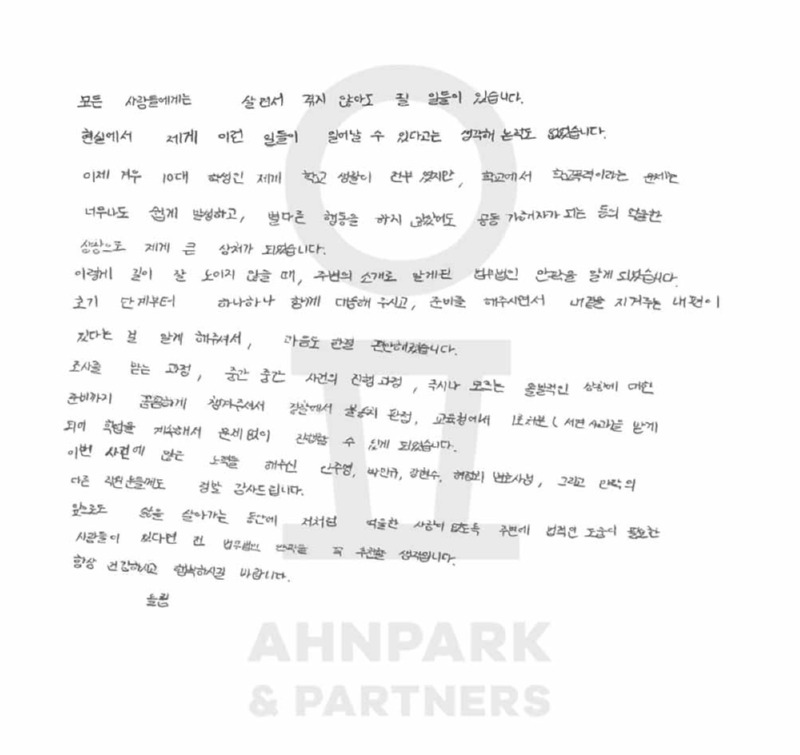 모든 사람들에게는 살면서 겪지 않아도 될 일들이 있습니다.
현실에서 제게 이런 일들이 일어날 수 있다고는 생각해 본적도 없었습니다.
이제 겨우 10대 학생인 제게 학교 생활이 전부 였지만, 학교에서 학교폭력이라는 문제는
너무나도 쉽게 발생하고, 별다른 행동을 하지 않았어도 공동 가해자가 되는 등의 억울한
상황으로 제게 큰 상처가 되었습니다.
이렇게 길이 잘 보이지 않을 때, 주변의 소개로 알게된 법무법인 안팍을 알게 되었습니다.
초기 단계부터 하나하나 함께 대응해 주시고, 준비를 해주시면서 내곁을 지켜주는 내 편이
있다는 걸 알게 해주셔서, 마음도 한결 편안해졌습니다.
조사를 받는 과정, 중간 중간 사건의 진행 과정, 혹시나 모르는 돌발적인 상황에 대한
준비까지 꼼꼼하게 챙겨주셔서 경찰에서 불송치 판정, 교육청에서 1호처분(서면 사과)을 받게
되어 학업을 계속해서 문제 없이 진행할 수 있게 되었습니다.
이번 사건에 많은 노력을 해주신 안주영, 박민규, 강현수, 변호사님, 그리고 안팍의
다른 직원분들께도 정말 감사드립니다.
앞으로도 삶을 살아가는 동안에 저처럼 억울한 사람이 없도록 주변에 법적인 도움이 필요한
사람들이 있다면 전 법무법인 안팍을 꼭 추천할 생각입니다.
항상 건강하시고 행복하시길 바랍니다.
드림
AHNPARK
& PARTNERS